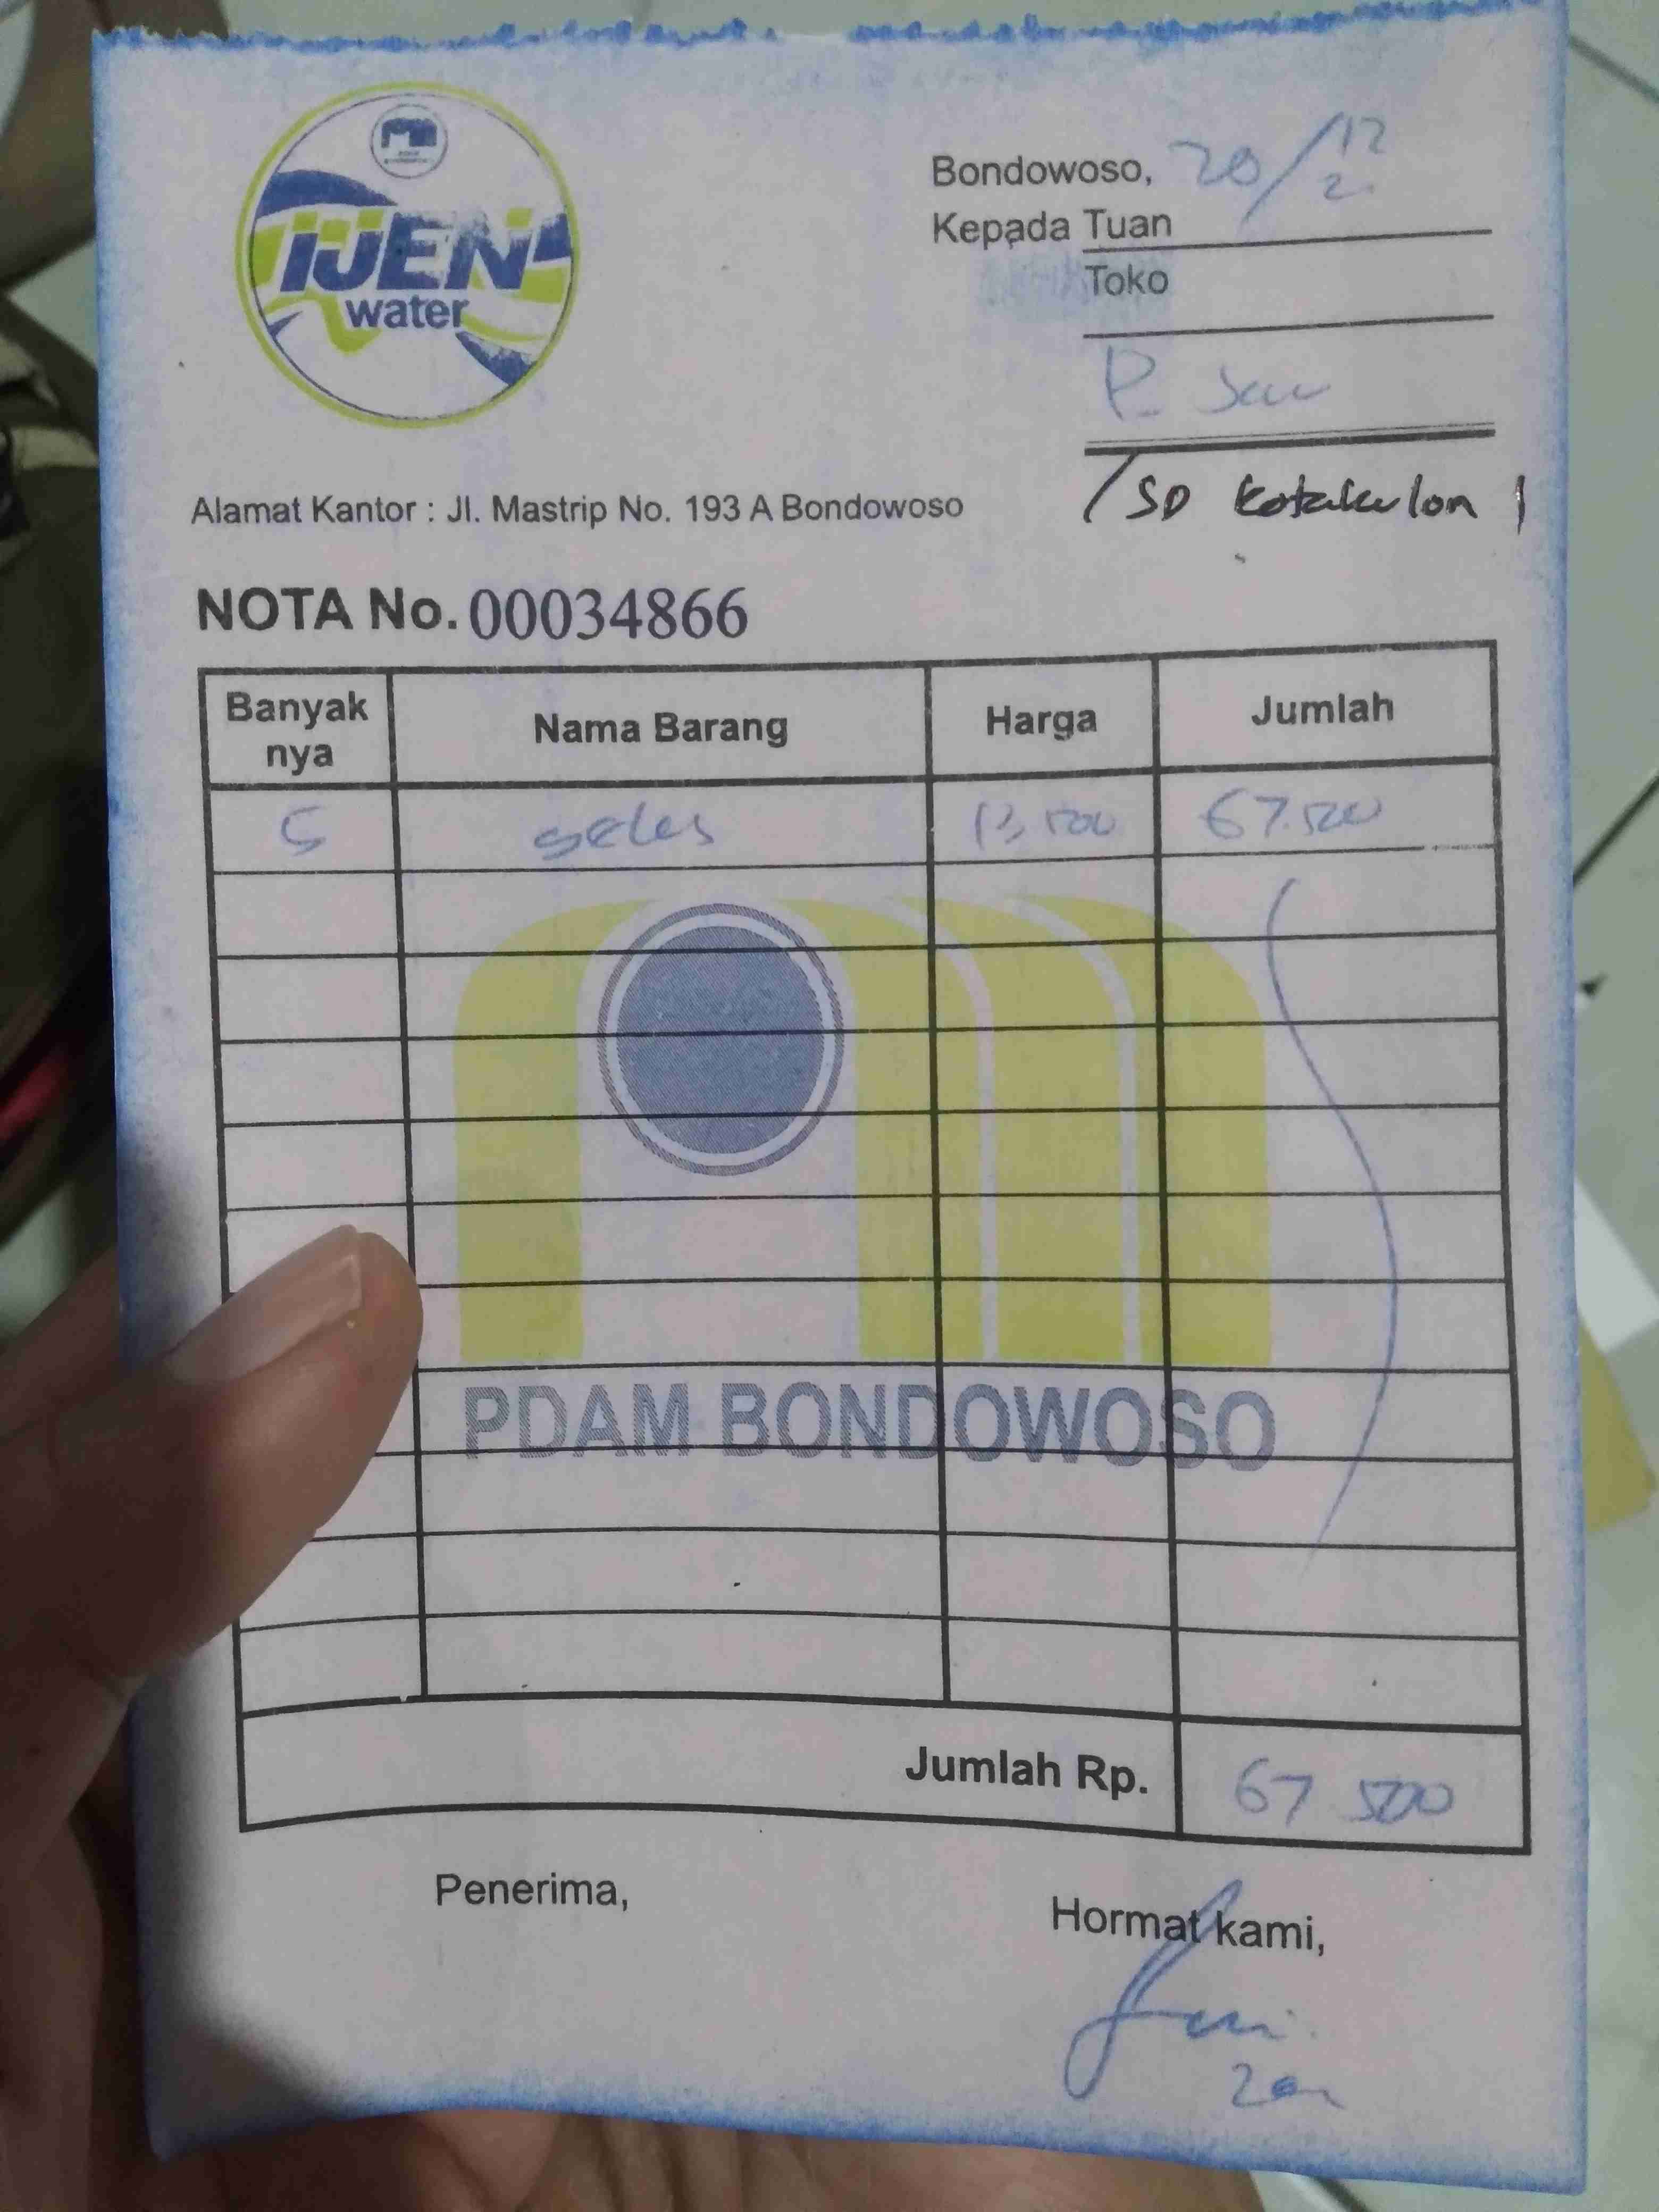 IJEN
water
Bondowoso, 20/12
Kepada Tuan
Toko
P.
/ SD Kotakulon 1
Alamat Kantor : Jl. Mastrip No. 193 A Bondowoso
NOTA No. 00034866
Banyak nya Nama Barang Harga Jumlah
5 gelas 13.500 67.500
PDAM BONDOWOSO
Jumlah Rp. 67 500
Penerima,
Hormat kami,